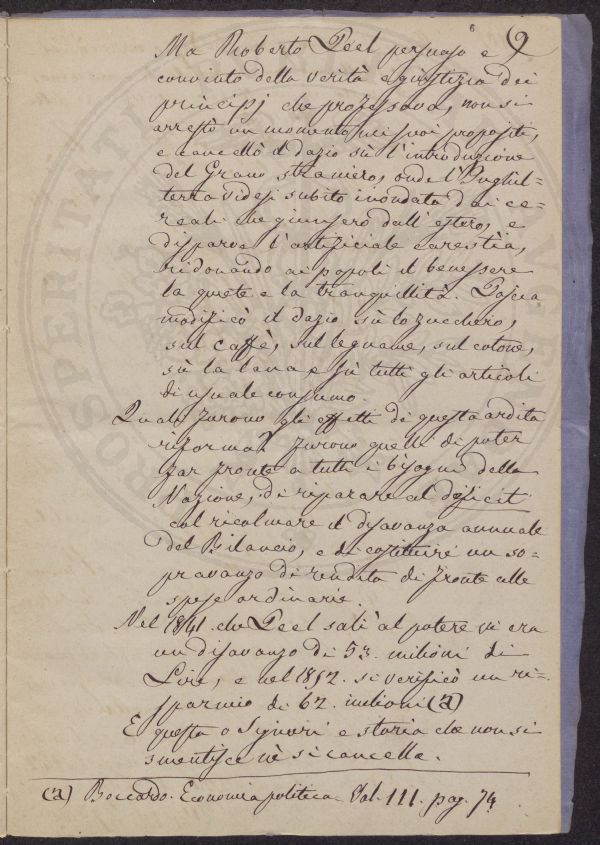 9
Ma Roberto Peel persuaso e
convinto della verità e giustizia dei
principj che professava, non si
arrestò un momento nei suoi propositi,
e cancellò il dazio sù l'introduzione
del Grano straniero, onde l'Inghil=
terra videsi subito inondata dai ce=
reali che giunsero dall'estero, e
disparve l'artificiale carestia,
ridonando ai popoli il benessere
la quiete e la tranquillità. Poscia
modificò il dazio sù lo zucchero,
sul caffè, sul legname, sul cotone,
sù la lana e sù tutti gli articoli
di usuale consumo.
Quali furono gli effetti di questa ardita
riforma? furono quelli di poter
far fronte a tutti i bisogni della
Nazione, di riparare al deficit
col ricolmare il disavanzo annuale
del Bilancio, e di costituire un so=
pravanzo di rendita di fronte alle
spese ordinarie.
Nel 1841. che Peel salì al potere vi era
un disavanzo di 53. milioni di
Lire, e nel 1852. si verificò un ri=
sparmio di 62. milioni (a)
E questa o Signori è storia che non si
smentisce nè si cancella.
(a) Boccardo. Economia politica. Vol. III. pag. 74
PROSPERITATI